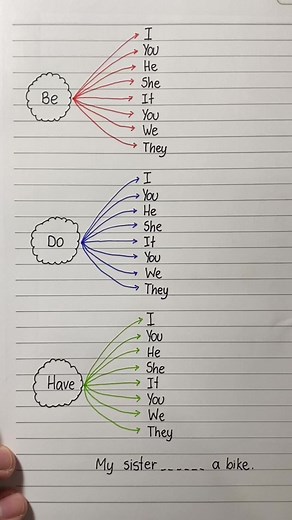 Be
I
You
He
She
It
You
We
They
Do
I
You
He
She
It
You
We
They
Have
I
You
He
She
It
You
We
They
My sister ______ a bike.